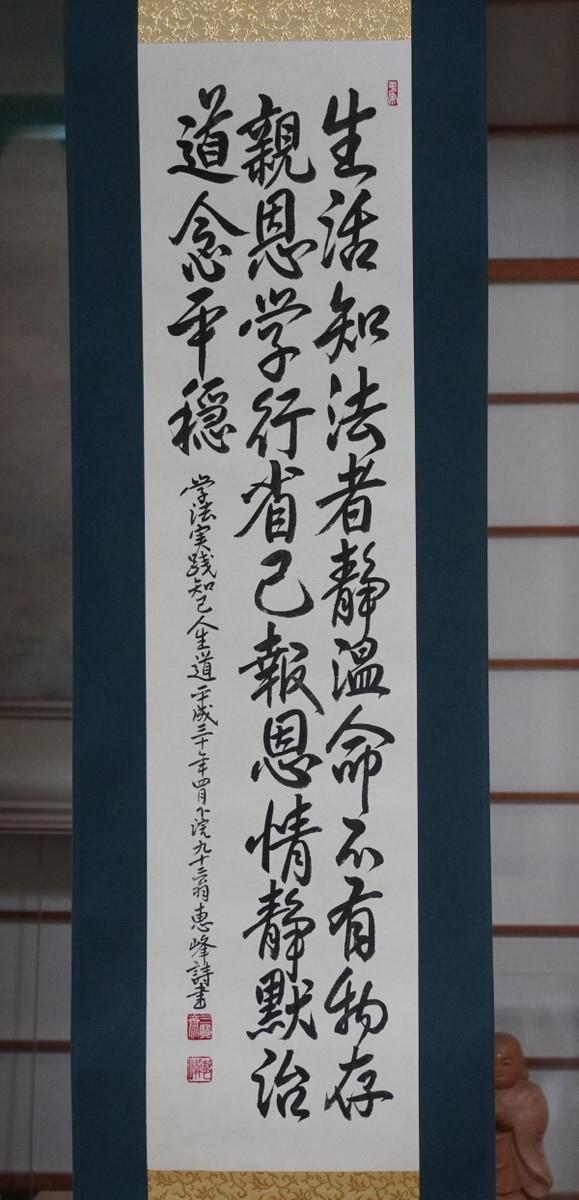 生活知法者静温命不有物存
親恩学行省己報恩情静黙治
道念平穏
学法実践知己人生道 平成三十年四月下浣九十三翁恵峰詩書